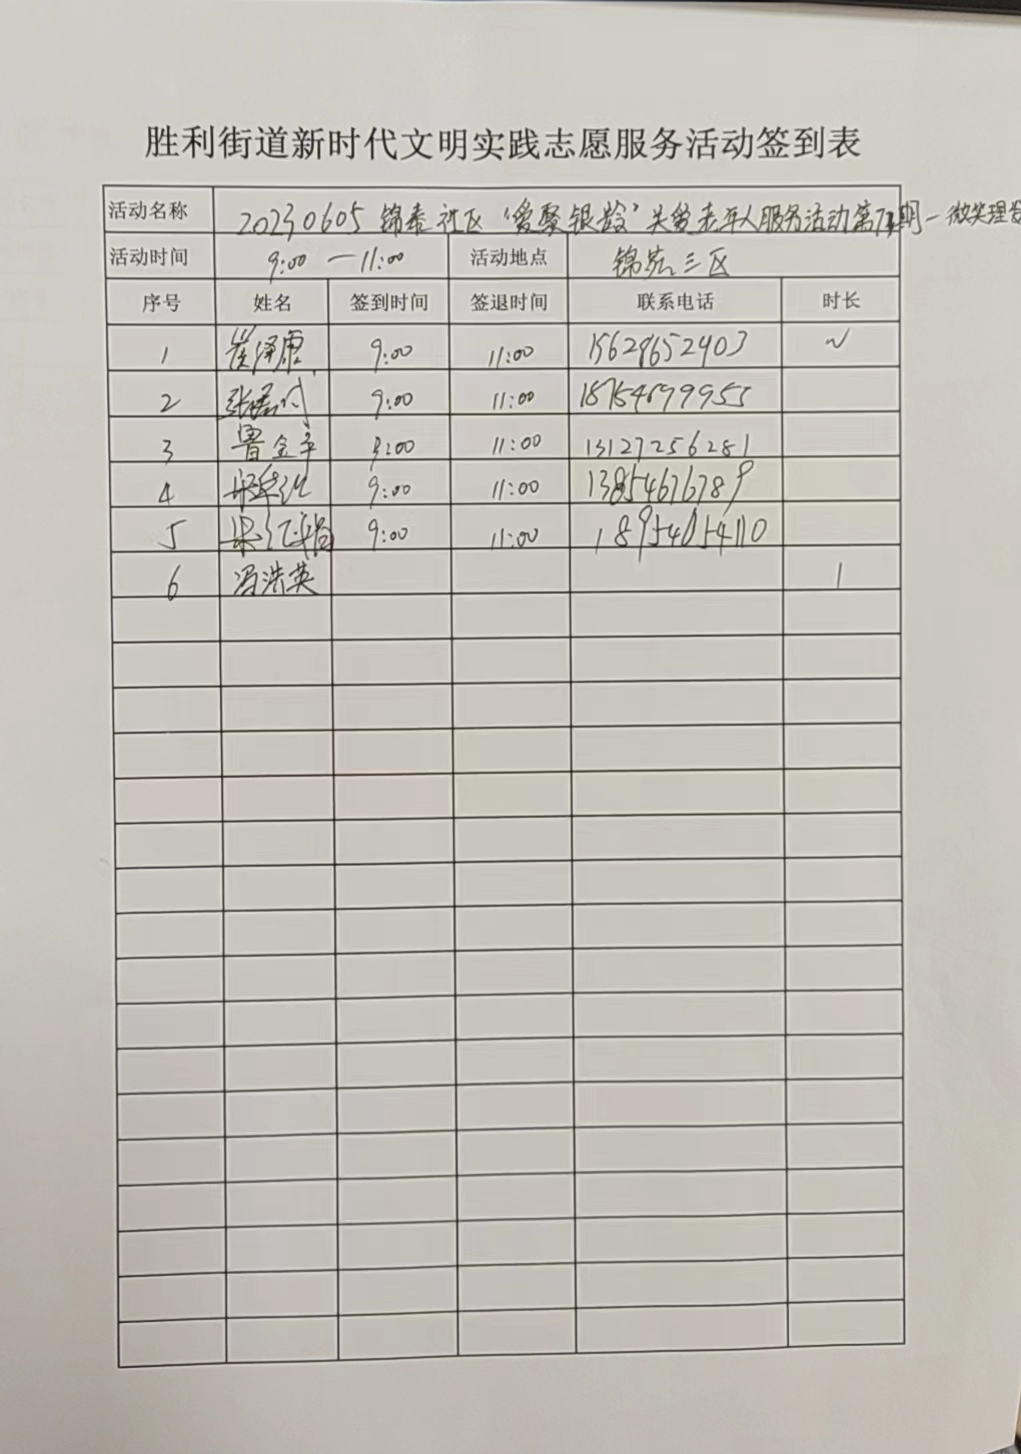 胜利街道新时代文明实践志愿服务活动签到表
活动名称 20230605 锦泰社区“爱聚银龄”关爱老年人服务活动第 期—微笑理发
活动时间 9:00 — 11:00 活动地点 锦苑三区
序号 姓名 签到时间 签退时间 联系电话 时长
1 崔泽康 9:00 11:00 15628652903
2 9:00 11:00 18754699955
3 曹金平 9:00 11:00 13127256281
4 9:00 11:00 13854676789
5 9:00 11:00 18954054110
6 冯洪英 1